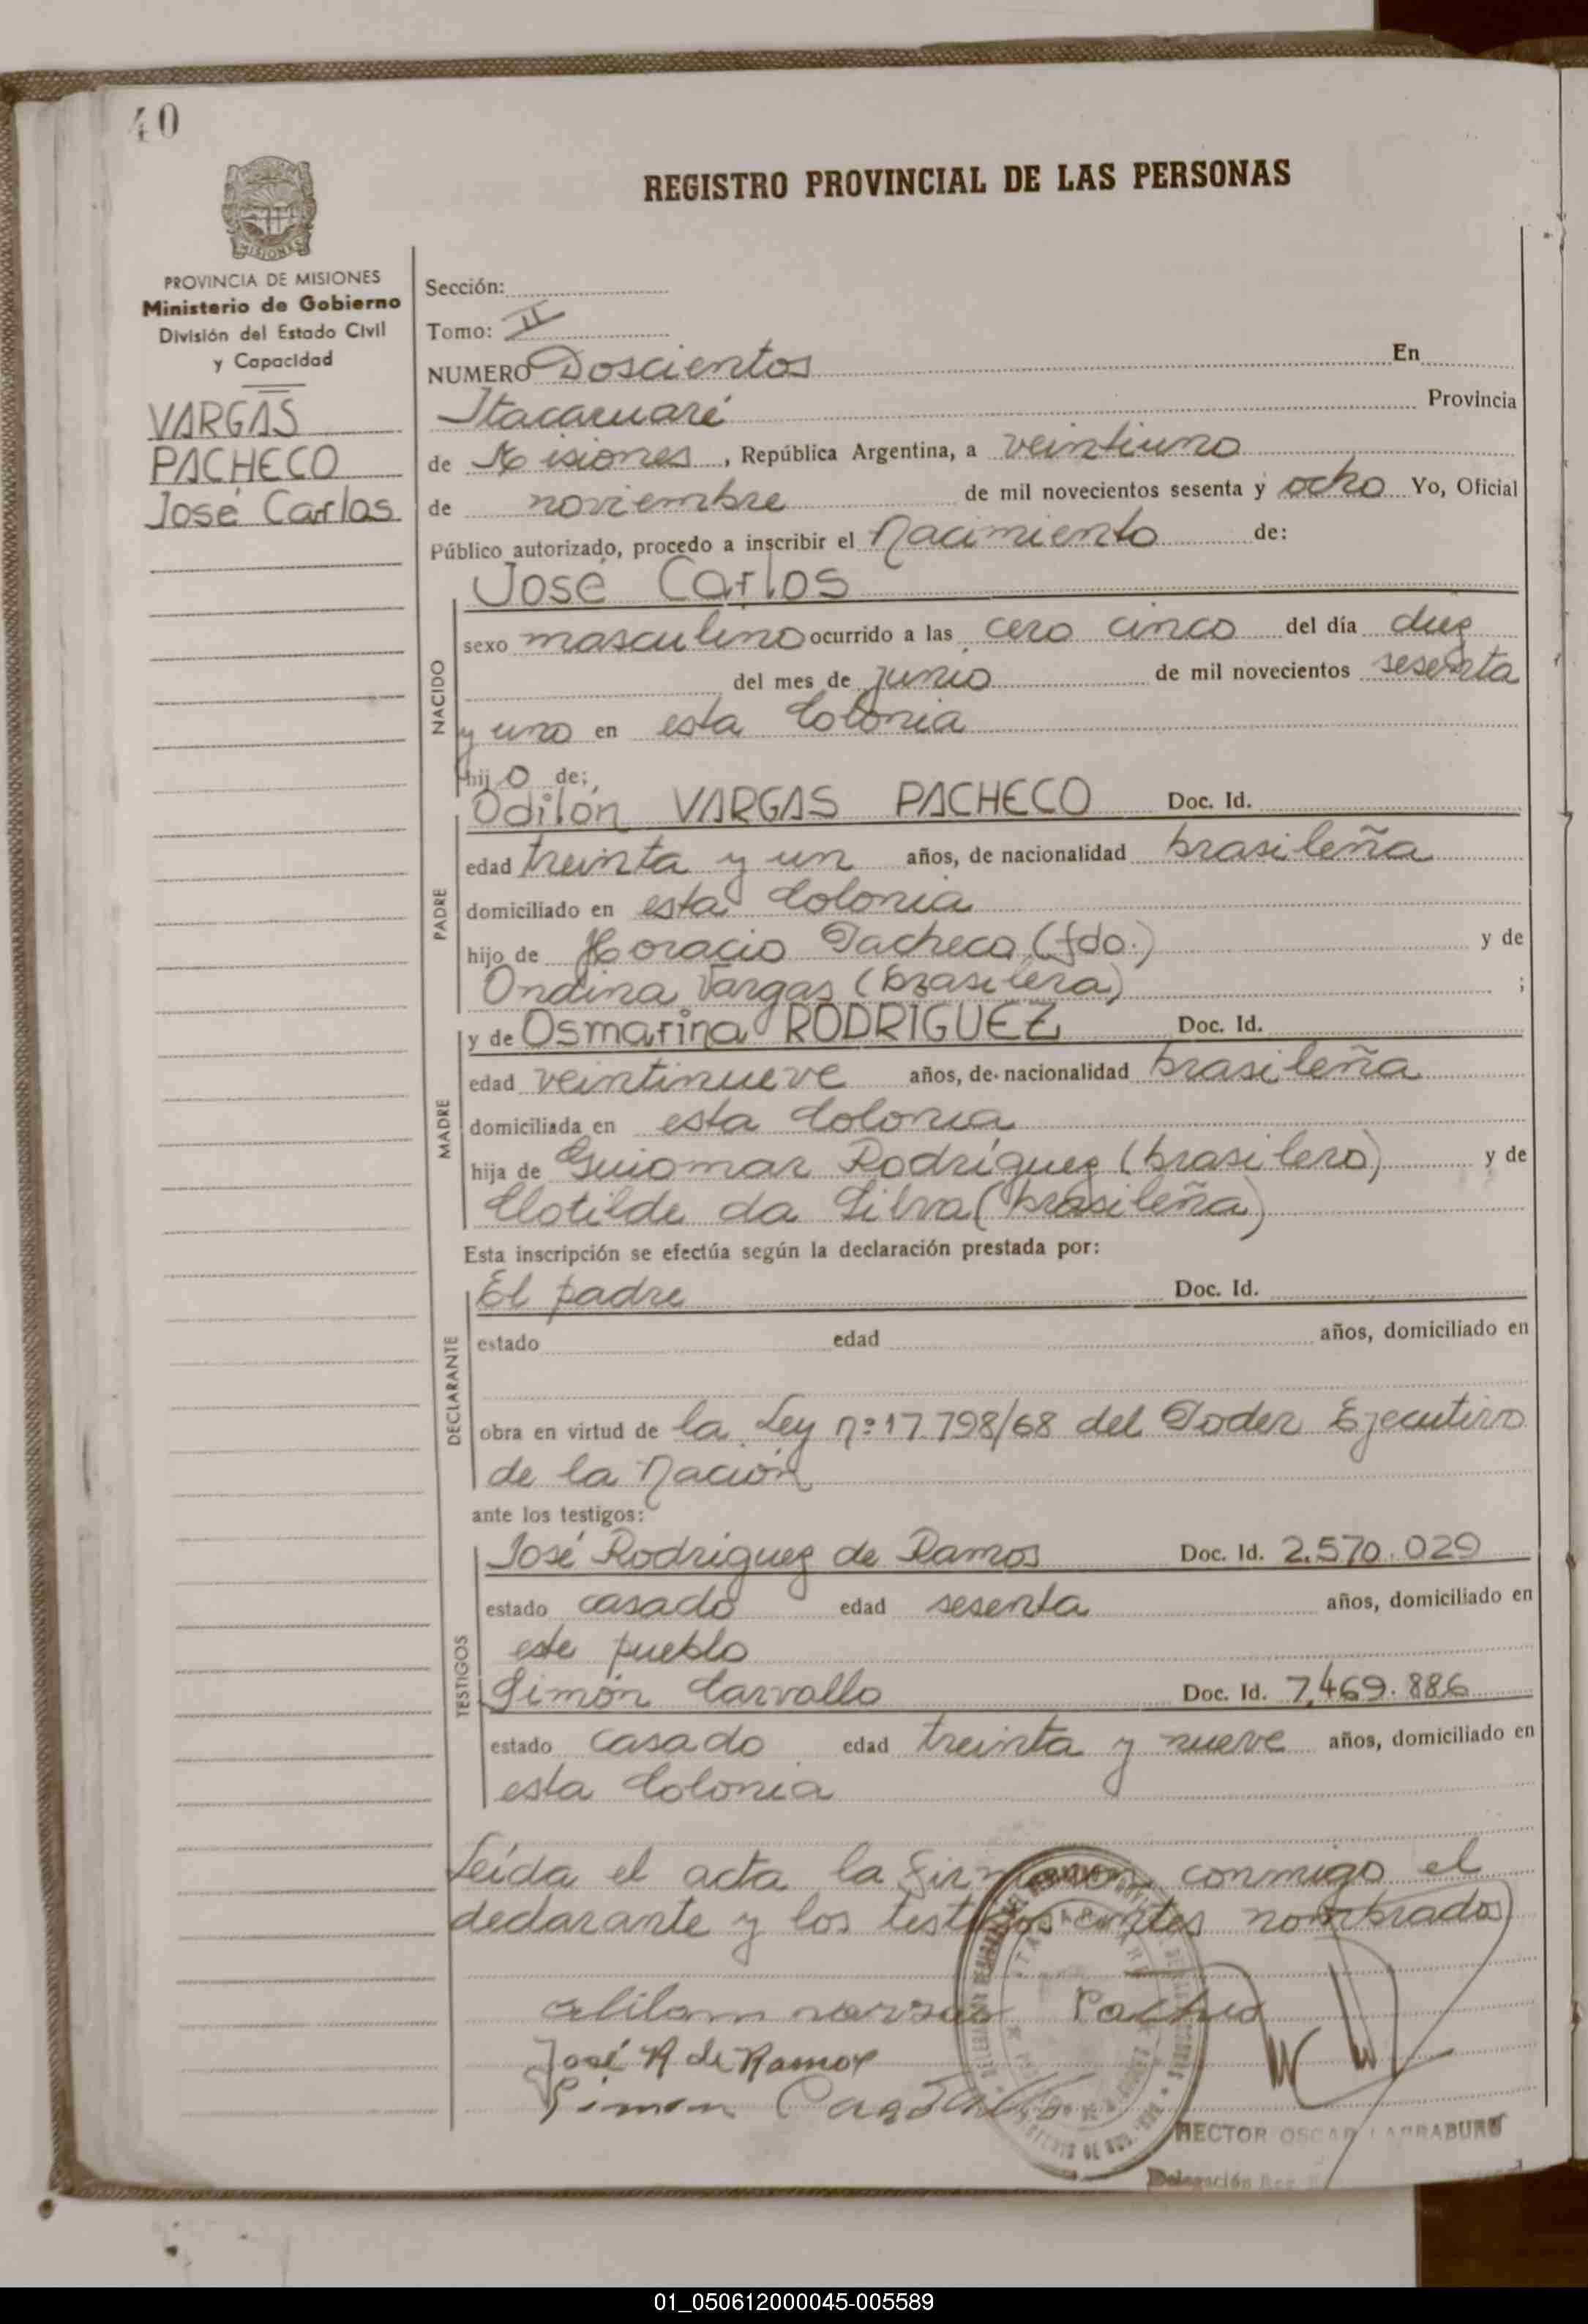 40
REGISTRO PROVINCIAL DE LAS PERSONAS
MISIONES
PROVINCIA DE MISIONES
Ministerio de Gobierno
División del Estado Civil
y Capacidad
VARGAS
PACHECO
José Carlos
Sección:
Tomo: II
NUMERO Doscientos En
Itacaruaré Provincia
de Misiones, República Argentina, a veintiuno
de noviembre de mil novecientos sesenta y ocho Yo, Oficial
Público autorizado, procedo a inscribir el Nacimiento de:
José Carlos
NACIDO
sexo masculino ocurrido a las cero cinco del día diez
del mes de junio de mil novecientos sesenta
y uno en esta Colonia
hijo de;
PADRE
Odilón VARGAS PACHECO Doc. Id.
edad treinta y un años, de nacionalidad brasileña
domiciliado en esta Colonia
hijo de Horacio Pacheco (fdo.) y de
Ondina Vargas (brasilera) ;
MADRE
y de Osmarina RODRIGUEZ Doc. Id.
edad veintinueve años, de nacionalidad brasileña
domiciliada en esta Colonia
hija de Guiomar Rodríguez (brasilero) y de
Clotilde da Silva (brasileña)
Esta inscripción se efectúa según la declaración prestada por:
DECLARANTE
El padre Doc. Id.
estado edad años, domiciliado en
obra en virtud de la Ley nº 17.798/68 del Poder Ejecutivo
de la Nación
ante los testigos:
TESTIGOS
José Rodríguez de Ramos Doc. Id. 2.570.029
estado casado edad sesenta años, domiciliado en
este pueblo
Simón Carvallo Doc. Id. 7.469.886
estado casado edad treinta y nueve años, domiciliado en
esta Colonia
Leída el acta la firmaron conmigo el
declarante y los testigos antes nombrados
Pacheco
José R de Ramos
Simon
HECTOR OSCAR LARRABURU
Delegación
01_050612000045-005589